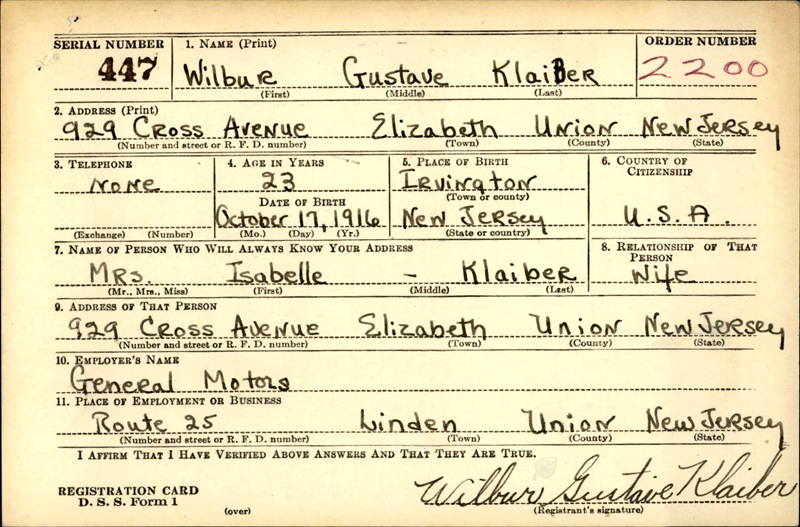 SERIAL NUMBER 1. NAME (Print) ORDER NUMBER
447 Wilbur Gustave Klaiber 2200
(First) (Middle) (Last)
2. ADDRESS (Print)
929 Cross Avenue Elizabeth Union New Jersey
(Number and street or R. F. D. number) (Town) (County) (State)
3. TELEPHONE 4. AGE IN YEARS 5. PLACE OF BIRTH 6. COUNTRY OF CITIZENSHIP
None 23 Irvington
(Town or county)
DATE OF BIRTH
October 17, 1916 New Jersey U.S.A.
(Exchange) (Number) (Mo.) (Day) (Yr.) (State or country)
7. NAME OF PERSON WHO WILL ALWAYS KNOW YOUR ADDRESS 8. RELATIONSHIP OF THAT PERSON
Mrs. Isabelle - Klaiber Wife
(Mr., Mrs., Miss) (First) (Middle) (Last)
9. ADDRESS OF THAT PERSON
929 Cross Avenue Elizabeth Union New Jersey
(Number and street or R. F. D. number) (Town) (County) (State)
10. EMPLOYER'S NAME
General Motors
11. PLACE OF EMPLOYMENT OR BUSINESS
Route 25 Linden Union New Jersey
(Number and street or R. F. D. number) (Town) (County) (State)
I AFFIRM THAT I HAVE VERIFIED ABOVE ANSWERS AND THAT THEY ARE TRUE.
REGISTRATION CARD Wilbur Gustave Klaiber
D. S. S. Form 1 (over) (Registrant's signature)